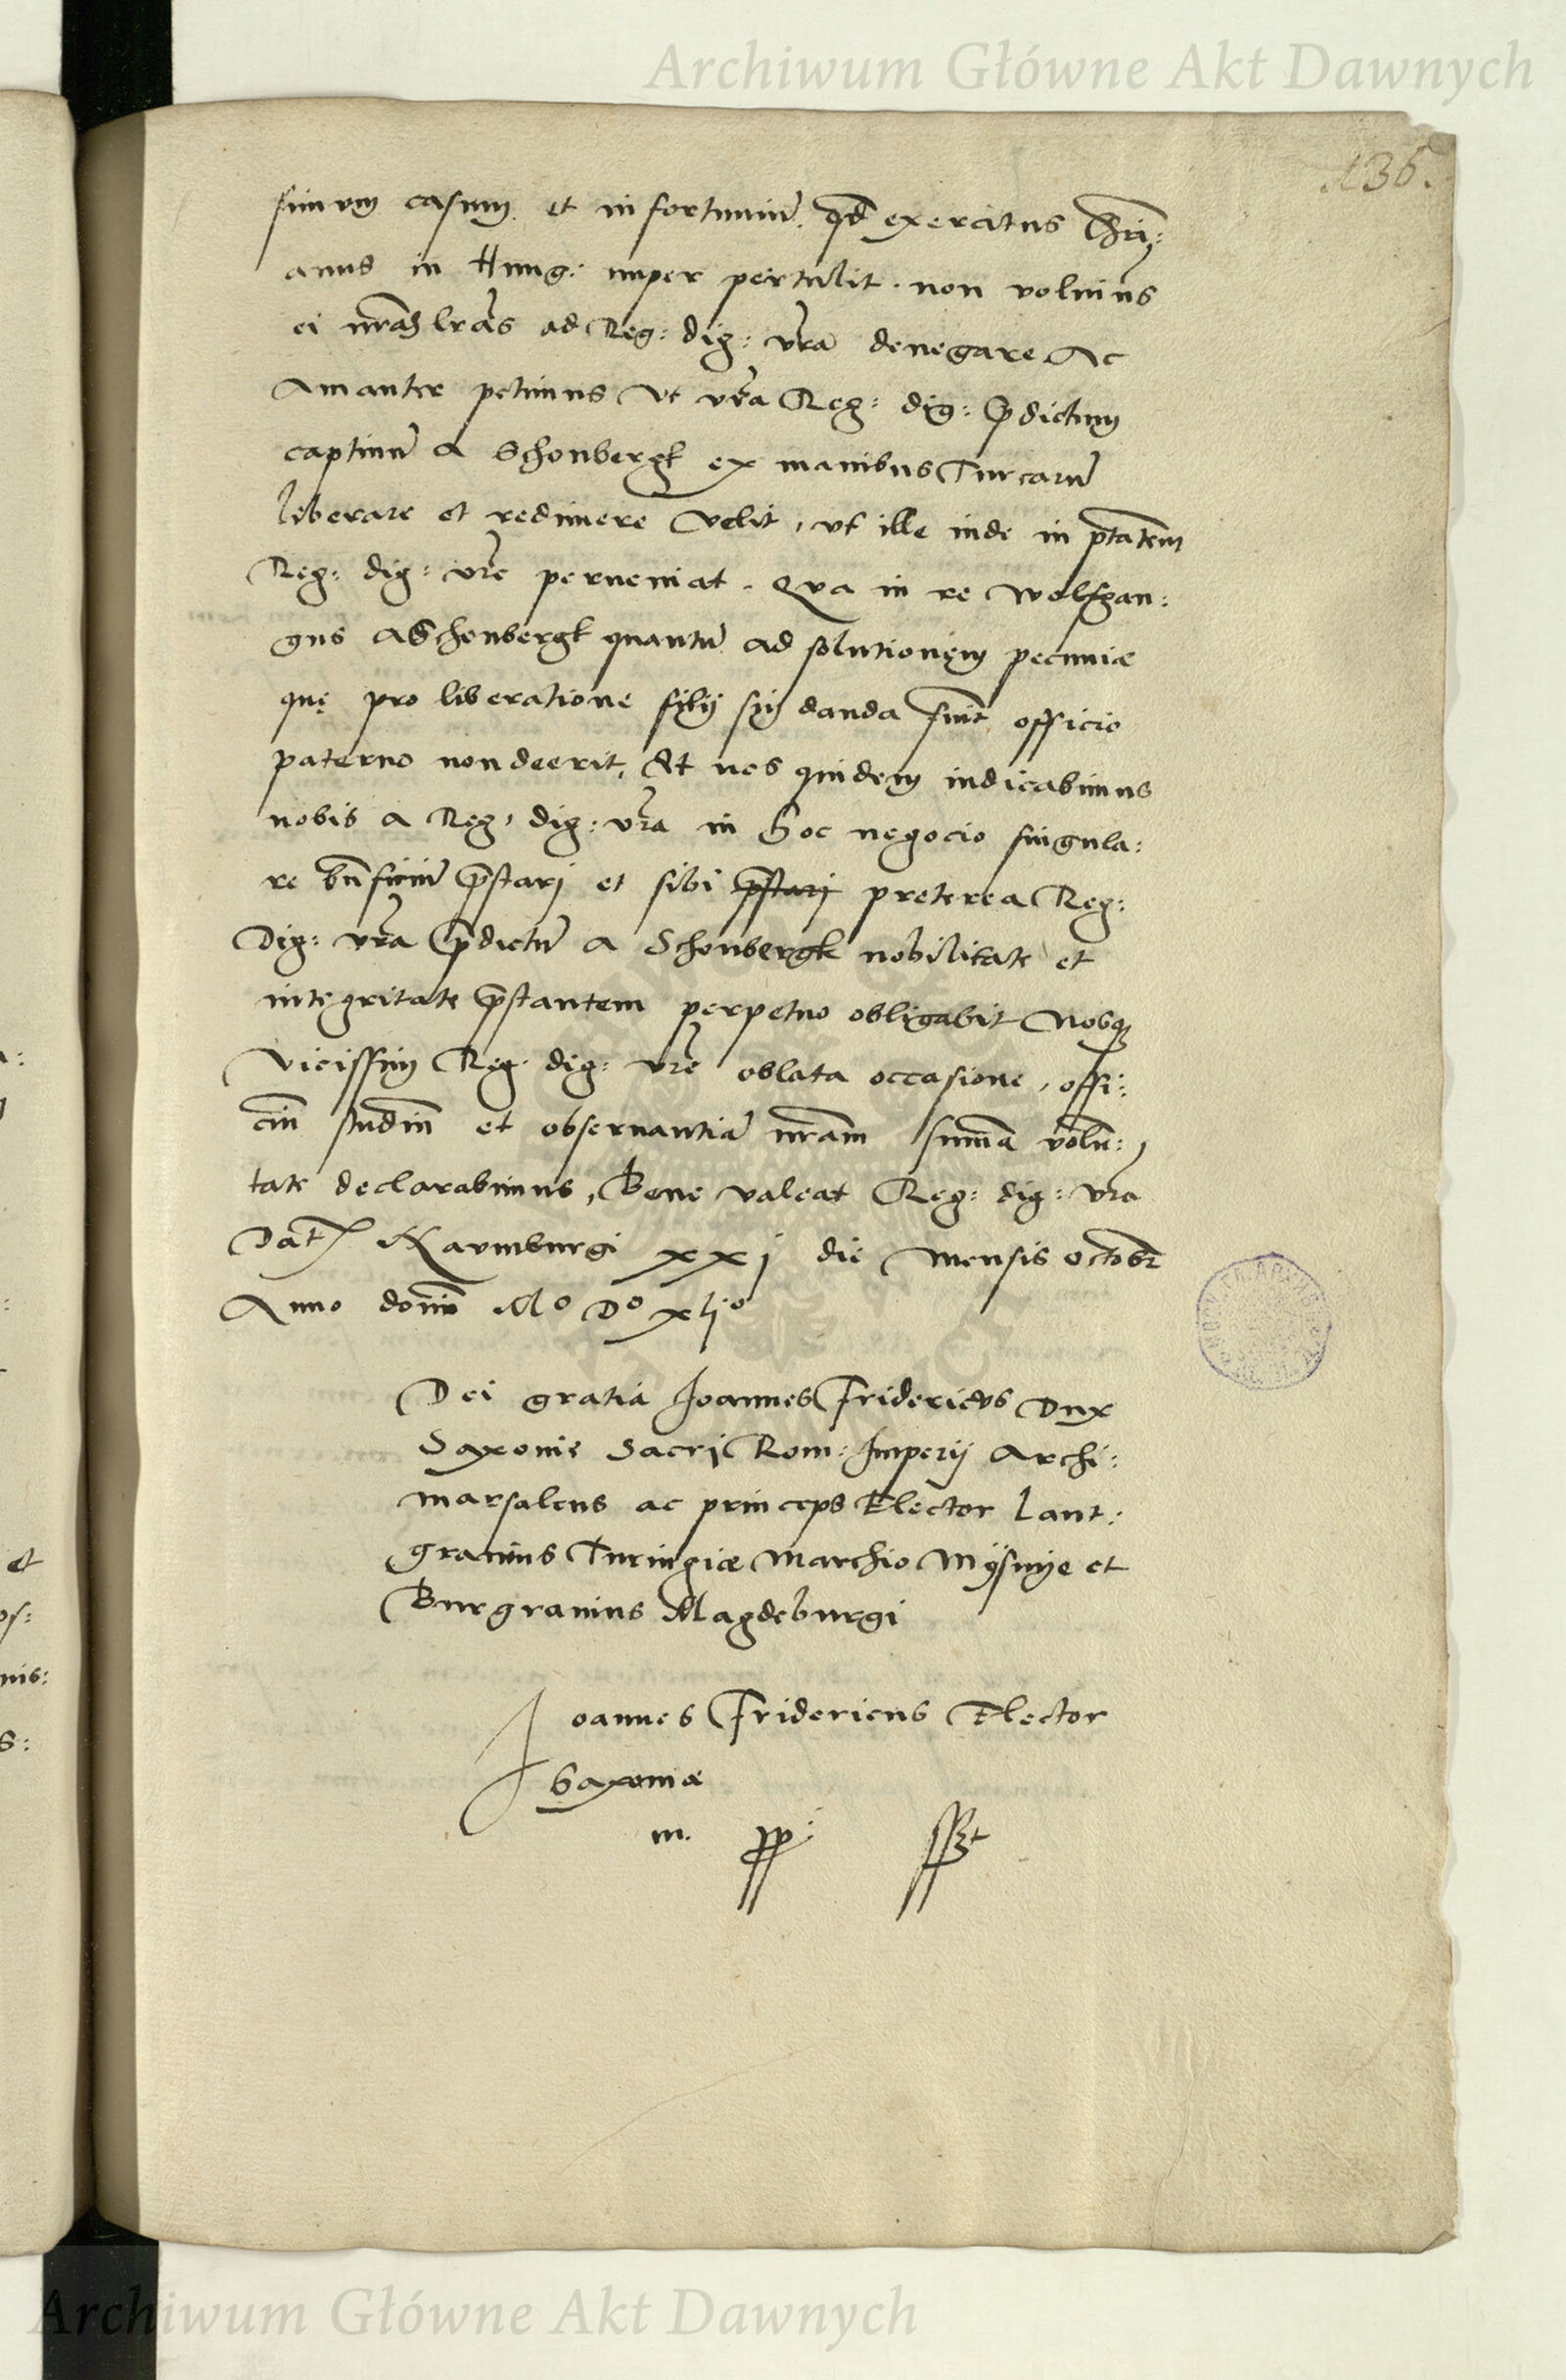 Archiwum Główne Akt Dawnych
136.
simum casum et infortuniū qd exercitus Chri:
anus in Hung: nuper pertulit. non voluimus
ei nrās lrās ad Reg: dig: vrā denegare Ac
Amanter petimus Vt vrā Reg: dig: p̄dictum
captiuū a Schonbergk ex manibus Turcarū
liberare et redimere Velit, vt ille inde in ptātem
Reg: dig: vrē perueniat. Qva in re Wolfgan:
gus a Schonbergk quantū ad solutionem pecuniæ
quę pro liberatione filij sui danda sunt officio
paterno non deerit, Et nos quidem iudicabimus
nobis a Reg: dig: vrā in hoc negocio singula:
re bn̄ficiū p̄stari et sibi p̄stari preterea Reg:
Dig: vrā p̄dictū a Schonbergk nobilitate et
integritate p̄stantem perpetuo obligabit Nosq
Vicissim Reg: dig: vrē oblata occasione, offi:
ciū studiū et obseruantiā nrām summa volū:
tate declarabimus, Bene valeat Reg: dig: vrā
Dat Naumburgi xxj die Mensis octobr
Anno domini Mo Do xljo
Dei gratia Joannes Fridericvs Dux
Saxonie Sacri Rom: Imperij Archi:
marsalcus ac princeps Elector Lant:
grauius Turingiæ Marchio Mysnije et
Burgrauius Magdeburgi
Joannes Fridericus Elector
Saxoniæ
m. pp:
Archiwum Główne Akt Dawnych